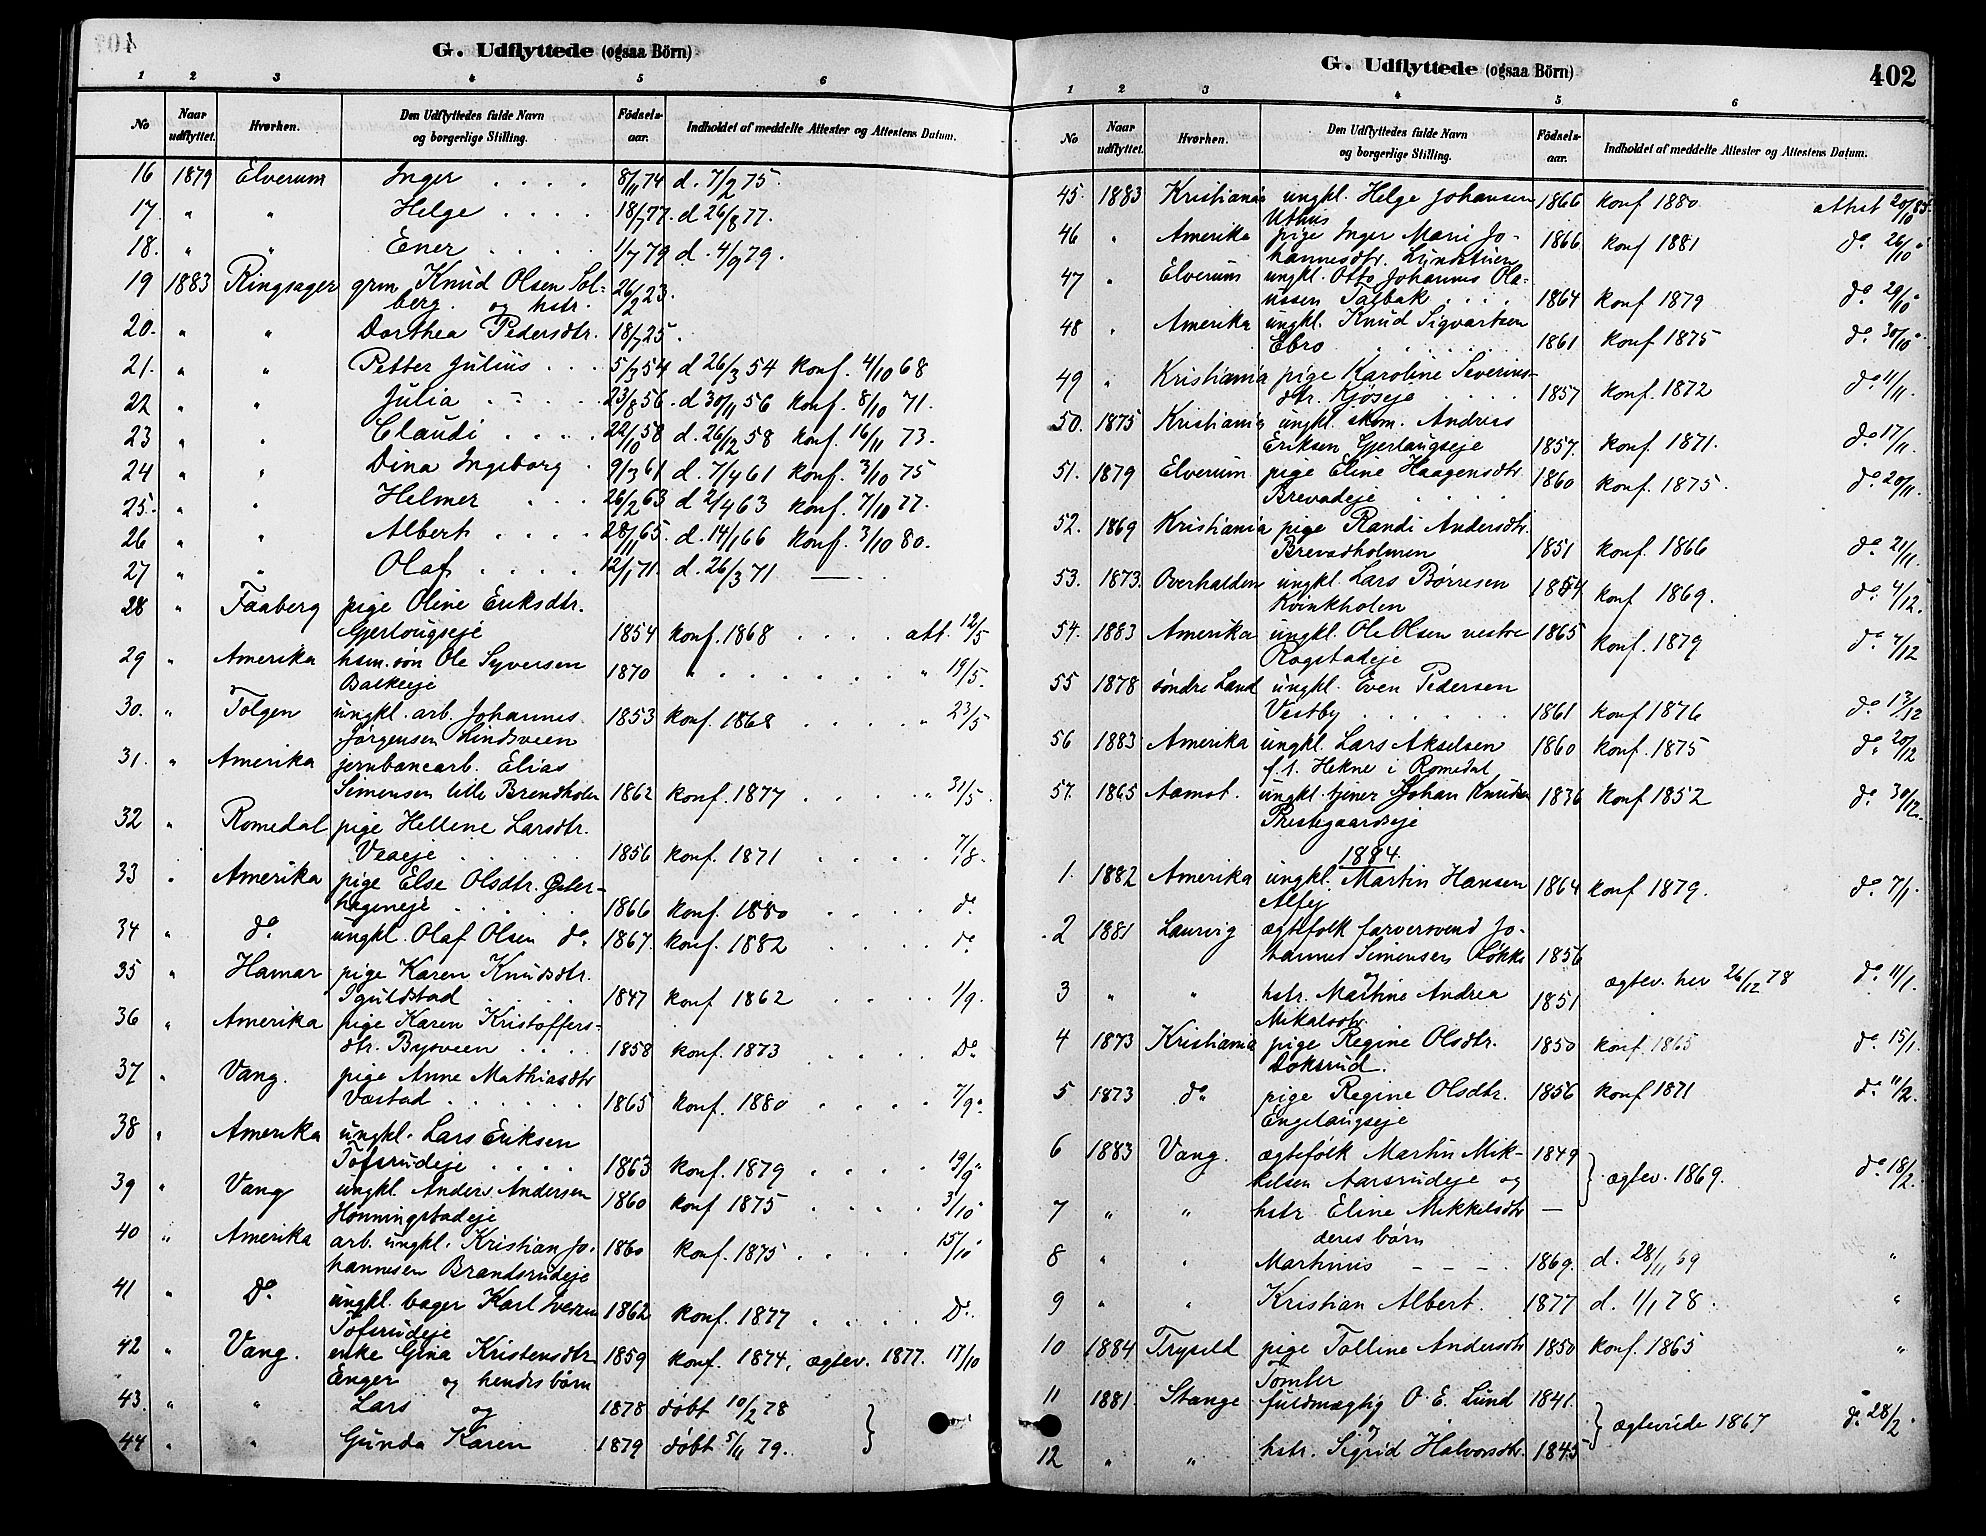 G. Udflyttede (ogsaa Börn)
1 2 3 4 5 6
No Naar udflyttet. Hvorhen. Den Udflyttedes fulde Navn og borgerlige Stilling. Födselsaar. Indholdet af meddelte Attester og Attestens Datum.
16 1879 Elverum Inger . . . . 8/11 74 d. 7/2 75.
17. " " Helge . . . . 18/7 77. d 26/8 77.
18. " " Ener . . . . 1/7 79 d. 4/9 79.
19 1883 Ringsager grm Knud Olsen Sol-
berg. og hstr. 26/2 23.
20. " " Dorthea Pedersdtr. 18/7 25.
21. " " Petter Julius . . . 5/3 54 d 26/3 54 konf. 4/10 68
22 " " Julia . . . . 23/8 56. d 30/11 56 konf. 8/10 71.
23 " " Claudi . . . . 22/10 58 d. 26/12 58 konf. 16/11 73.
24 " " Dina Ingeborg . 9/3 61 d. 7/4 61 konf. 3/10 75
25. " " Helmer . . . 26/2 63 d 2/4 63 konf. 7/10 77.
26 " " Albert . . . . 28/11 65. d. 14/1 66 konf. 3/10 80.
27 " " Olaf . . . . 12/1 71. d. 26/3 71 —
28 " Faaberg pige Oline Eriksdtr.
Gjerlougseje 1854 konf. 1868 . . . . att. 12/5
29 " Amerika hsm. søn Ole Syversen
Balkeeje 1870 " . . . . . . " 19/5.
30. " Tolgen ungkl. arb. Johannes 1853 konf. 1868 . . . . " 23/5
Jørgensen Lundsveen
31. " Amerika jernbanearb. Elias
Simensen lille Brendholen 1862 konf. 1877 . . . . " 31/5.
32 " Romedal pige Hellene Larsdtr.
Veaeje 1856 konf. 1871 . . . . 7/8.
33 " Amerika pige Else Olsdtr. Øster-
hageneje 1866 konf. 1880 . . . . do.
34 " do. ungkl. Olaf Olsen do. 1867. konf. 1882 . . . . do.
35 " Hamar pige Karen Knudsdtr.
1847 konf 1862 . . . . 1/9.
36 " Amerika pige Karen Kristoffers-
dtr. Bysveen . . . . 1858 konf. 1873 . . . . Do.
37 " Vang. pige Anne Mathiasdtr
Vastad . . . . . 1865 konf. 1880 . . . . 7/9.
38 " Amerika ungkl. Lars Eriksen
Tofsrudeje . . . . 1863 konf. 1879 . . . . 19/9
39 " Vang ungkl. Anders Andersen 1860 konf. 1875 . . . . 3/10
Honningstadeje
40 " Amerika arb. ungkl. Kristian Jo- 1860 konf. 1875 . . . . 15/10
hannesen Brandsrudeje
41 " Do. ungkl. bager Karl Iversen 1862 konf. 1877 . . . . Do.
Tofsrudeje
42 " Vang. enke Gina Kristensdtr 1859 konf. 1874, ægtev. 1877. 17/10
Enger og hendes børn
43. " " Lars og 1878 døbt 10/2 78
44 " " Gunda Karen 1879 døbt 5/11 79.
G. Udflyttede (ogsaa Börn) 402
1 2 3 4 5 6
No Naar udflyttet. Hvorhen. Den Udflyttedes fulde Navn og borgerlige Stilling. Födselsaar. Indholdet af meddelte Attester og Attestens Datum.
45. 1883 Kristiania ungkl. Helge Johansen 1866 konf 1880 attest 20/10 83.
Uthus
46 " Amerika pige Inger Marie Jo- 1866. konf 1881 do. 26/10
hannesdtr. Lundstuen
47 " Elverum ungkl. Otto Johannes Ola-
ussen Talbak . . . . 1864 konf 1879 do. 29/10
48 " Amerika ungkl. Knud Sigvartsen
Ebro . . . . 1861 konf 1875 do. 30/10
49 " Kristiania pige Karoline Severins-
dtr. Kjøseje . . . . 1857 konf. 1872 do 11/11.
50. 1875 Kristiania ungkl. skom. Andreas
Eriksen Gjerlougseje 1857. konf. 1871. do 17/11.
51. 1879 Elverum pige Eline Haagensdtr.
Brevadeje . . . . 1860 konf. 1875. do. 20/11.
52. 1869 Kristiania pige Randi Andersdtr.
Brevadholmen 1851 konf. 1866 do. 21/11.
53. 1873. Overhalden ungkl. Lars Børresen 1854 konf 1869. do. 4/12.
Kvinkholen
54. 1883 Amerika ungkl. Ole Olsen vestre 1865 konf. 1879 do. 7/12
Rogstadeje
55 1878 søndre Land ungkl. Even Pedersen
Vestby . . . . 1861 konf 1876 do 13/12
56 1883 Amerika ungkl. Lars Akselsen 1860 konf. 1875 do. 20/12
f. t. Hekne i Romedal
57. 1865 Aamot. ungkl. tjener Johan Knudsen 1836 konf 1852 do. 30/12.
Prestegaardseje
1884.
1. 1882 Amerika ungkl. Martin Hansen 1864 konf 1879. do. 7/1.
2 1881 Laurvig ægtefolk farversvend Jo-
hannes Simensen Løkke 1856
og ægtev. her 26/12 78 do. 11/1.
3 " " hstr. Martine Andrea 1851
Mikalsdtr
4 1873 Kristiania pige Regine Olsdtr. 1850 konf. 1865 do. 15/1.
Doksrud.
5 1873 do pige Regine Olsdtr. 1856 konf 1871 do. 11/2.
Engelaugseje
6 1883 Vang. ægtefolk Martin Mik- 1849 ægtev. 1869. do. 18/2.
kelsen Aarsrudeje og
7 " " hstr Eline Mikkelsdtr —
deres børn
8 " " Martinus — — — 1869. d. 28/11 69 "
9 " " Kristian Albert. 1877 d. 1/1 78. "
10 1884 Trysild pige Tolline Andersdtr 1850 konf. 1865 "
Tomter
11 1881. Stange fuldmægtig O. E. Lund 1841.
og ægteviede 1867 do. 28/2.
12 " " hstr. Sigrid Halvorsdtr. 1845